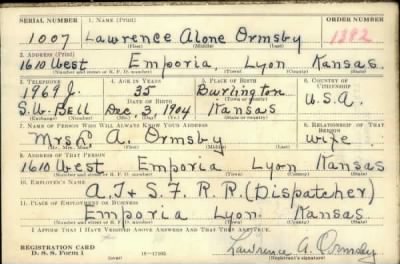 SERIAL NUMBER 1. NAME (Print) ORDER NUMBER
1007 Lawrence Alone Ormsby 1392
(First) (Middle) (Last)
2. ADDRESS (Print)
1610 West Emporia, Lyon Kansas.
(Number and street or R. F. D. number) (Town) (County) (State)
3. TELEPHONE 4. AGE IN YEARS 5. PLACE OF BIRTH 6. COUNTRY OF CITIZENSHIP
1969 J. 35 Burlington
DATE OF BIRTH (Town or county)
S.W. Bell Dec. 3, 1904 Kansas U.S.A.
(Exchange) (Number) (Mo.) (Day) (Yr.) (State or country)
7. NAME OF PERSON WHO WILL ALWAYS KNOW YOUR ADDRESS 8. RELATIONSHIP OF THAT PERSON
Mrs. A. Ormsby wife
(Mr., Mrs., Miss) (First) (Middle) (Last)
9. ADDRESS OF THAT PERSON
1610 West Emporia Lyon Kansas
(Number and street or R. F. D. number) (Town) (County) (State)
10. EMPLOYER'S NAME
A.T & S.F. R.R. (Dispatcher)
11. PLACE OF EMPLOYMENT OR BUSINESS
Emporia Lyon Kansas
(Number and street or R. F. D. number) (Town) (County) (State)
I AFFIRM THAT I HAVE VERIFIED ABOVE ANSWERS AND THAT THEY ARE TRUE.
REGISTRATION CARD
D. S. S. Form 1 Lawrence A. Ormsby
(Registrant's signature)